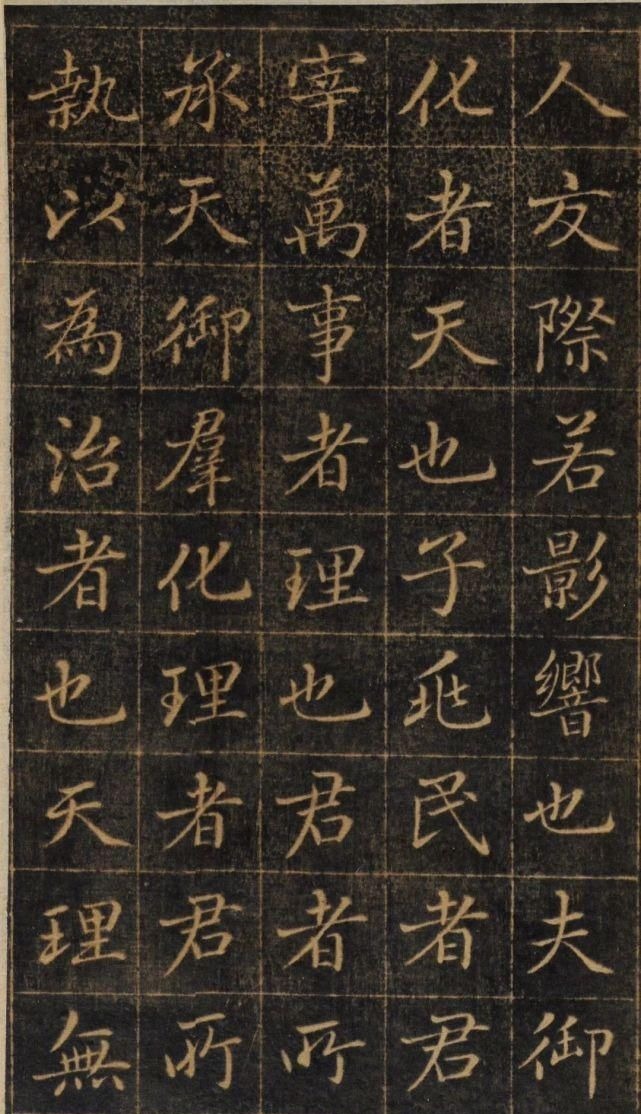 人交際若影響也夫御
化者天也子兆民者君
宰萬事者理也君者所
承天御羣化理者君所
執以為治者也天理無